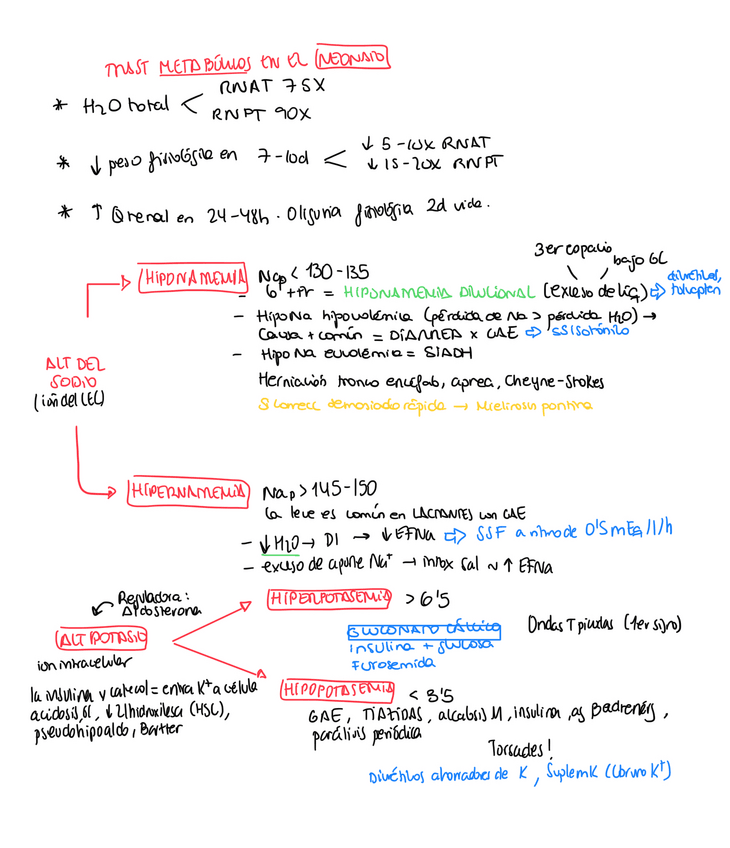 TRAST METABÓLICOS EN EL NEONATO
* H2O total < RNAT 75%
RNPT 90%
* ↓ peso fisiológica en 7-10d < ↓ 5-10% RNAT
↓ 15-20% RNPT
* ↑ Ø renal en 24-48h. Oliguria fisiológia 2d vida.
3er espacio bajo GC
HIPONANEMIA Nap < 130-135
- 6 + fr = HIPONANEMIA DILUCIONAL (exceso de liq) ⇨ diuréticos, tolvaptan
- HipoNa hipovolémica (pérdida de Na > pérdida H2O) →
Causa + común = DIARREA x GAE ⇨ SSIsotónico
- HipoNa euvolémia = SIADH
Herniación tronco encefab, apnea, Cheyne-Stokes
S correcc demasiado rápida → Mielinosis pontina
ALT DEL
SODIO
(ión del LEC)
HIPERNANEMIA Nap > 145-150
La leve es común en LACTANTES con GAE
- ↓H2O → DI → ↓EFNa ⇨ SSF a ritmo de 0'5 mEq/l/h
- exceso de aporte Na+ → intox sal ~ ↑ EFNa
Reguladora:
Aldosterona
ALT POTASIO
ion intracelular
la insulina y catecol = entra K+ a célula
acidosis, GI, ↓ 21hidroxilasa (HSC),
pseudohipoaldo, Bartter
HIPERPOTASEMIA > 6'5
GLUCONATO CÁLCICO
insulina + glucosa
Furosemida
Ondas T picudas (1er signo)
HIPOPOTASEMIA < 3'5
GAE, TIAZIDAS, alcalosis M, insulina, ag Badrenérg,
parálisis periódica
Torsades!
Diuréticos ahorradores de K, Suplem K (Cloruro K+)